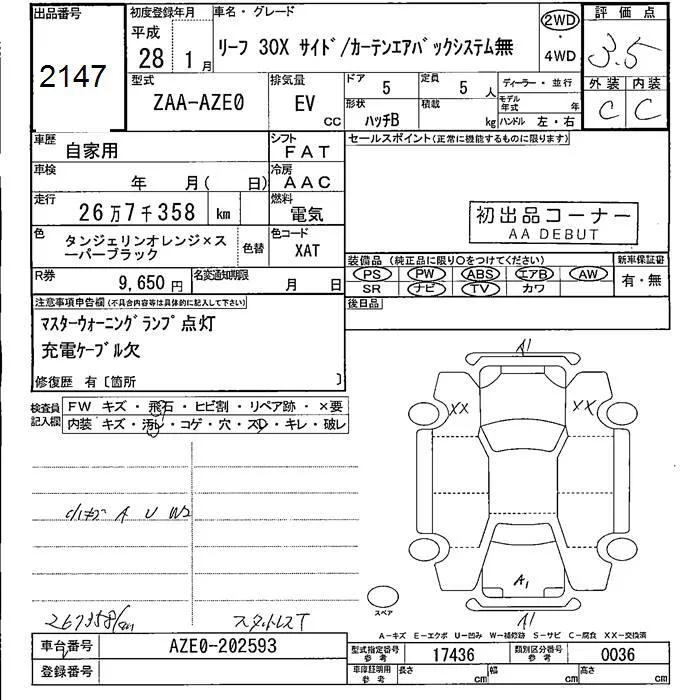 出品番号
2147
初度登録年月
平成
28 1月
車名・グレード
リーフ 30X サイド/カーテンエアバックシステム無
2WD
4WD
評価点
3.5
外装 内装
C C
型式
ZAA-AZE0
排気量
EV
CC
ドア
5
定員
5人
形状
ハッチB
積載
kg
ディーラー・並行
モデル年式 年
ハンドル 左・右
車歴
自家用
シフト
FAT
車検
年 月( 日)
冷房
AAC
走行
26万7千358 km
燃料
電気
色
タンジェリンオレンジ×スーパーブラック
色替
色コード
XAT
R券
9,650円
名変通知期限
月 日
セールスポイント(正常に機能するものに限ります)
初出品コーナー
AA DEBUT
装備品 (純正品に限り○をつけてください)
PS PW ABS エアB AW
SR ナビ TV カワ
新車保証書
有・無
後日品
注意事項申告欄(不具合内容等は具体的に記入して下さい)
マスターウォーニングランプ点灯
充電ケーブル欠
修復歴 有〔箇所 〕
検査員記入欄
FW キズ・飛石・ヒビ割・リペア跡・×要
内装 キズ・汚レ・コゲ・穴・スレ・キレ・破レ
小キズ A U W2
267358km
スタットレスT
A1
XX XX
A1
A1
スペア
A-キズ E-エクボ U-凹み W-補修跡 S-サビ C-腐食 XX-交換済
車台番号
AZE0-202593
登録番号
型式指定番号 参考
17436
類別区分番号 参考
0036
車庫証明用 参考
長さ cm
幅 cm
高さ cm